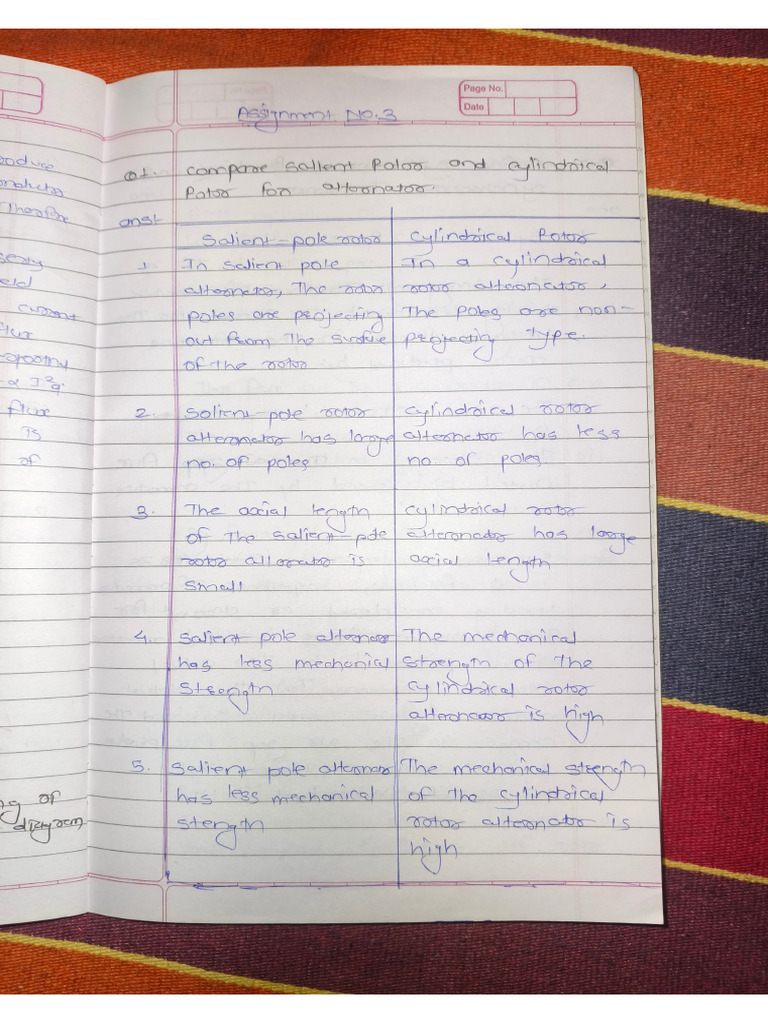 Page No.
Date
Assignment No.3
Q1. Compare Salient Polor and cylindrical
Rotor for alternator.
ans1
Salient-pole rotor
cylindrical Rotor
1. In salient pole
alternator, The rotor
poles are projecting
out from The surface
of the rotor
In a cylindrical
rotor alternator,
The poles are non-
projecting Type.
2. Salient-pole rotor
alternator has large
no. of poles
cylindrical rotor
alternator has less
no. of poles.
3. The axial length
of The salient-pole
rotor alternator is
small
cylindrical rotor
alternator has large
axial length
4. Salient pole
has less mechanical
strength
The mechanical
strength of The
cylindrical rotor
is high
5. Salient pole
has less mechanical
stength
The mechanical strength
of The cylindrical
rotor alternator is
high
current
flux
is
of
of
diagram